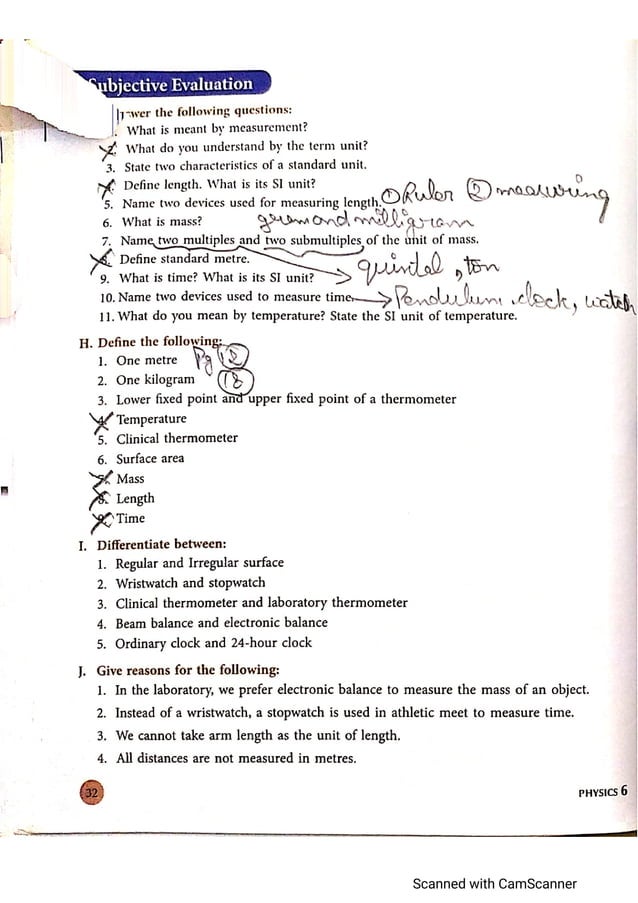 Subjective Evaluation
wer the following questions:
What is meant by measurement?
2. What do you understand by the term unit?
3. State two characteristics of a standard unit.
4. Define length. What is its SI unit?
5. Name two devices used for measuring length. ① Ruler ② measuring
6. What is mass? gram and milligram
7. Name two multiples and two submultiples of the unit of mass.
8. Define standard metre. quintal, ton
9. What is time? What is its SI unit?
10. Name two devices used to measure time. Pendulum clock, watch
11. What do you mean by temperature? State the SI unit of temperature.
H. Define the following:
1. One metre Pg 12
2. One kilogram 18
3. Lower fixed point and upper fixed point of a thermometer
4. Temperature
5. Clinical thermometer
6. Surface area
7. Mass
8. Length
9. Time
I. Differentiate between:
1. Regular and Irregular surface
2. Wristwatch and stopwatch
3. Clinical thermometer and laboratory thermometer
4. Beam balance and electronic balance
5. Ordinary clock and 24-hour clock
J. Give reasons for the following:
1. In the laboratory, we prefer electronic balance to measure the mass of an object.
2. Instead of a wristwatch, a stopwatch is used in athletic meet to measure time.
3. We cannot take arm length as the unit of length.
4. All distances are not measured in metres.
32
PHYSICS 6
Scanned with CamScanner